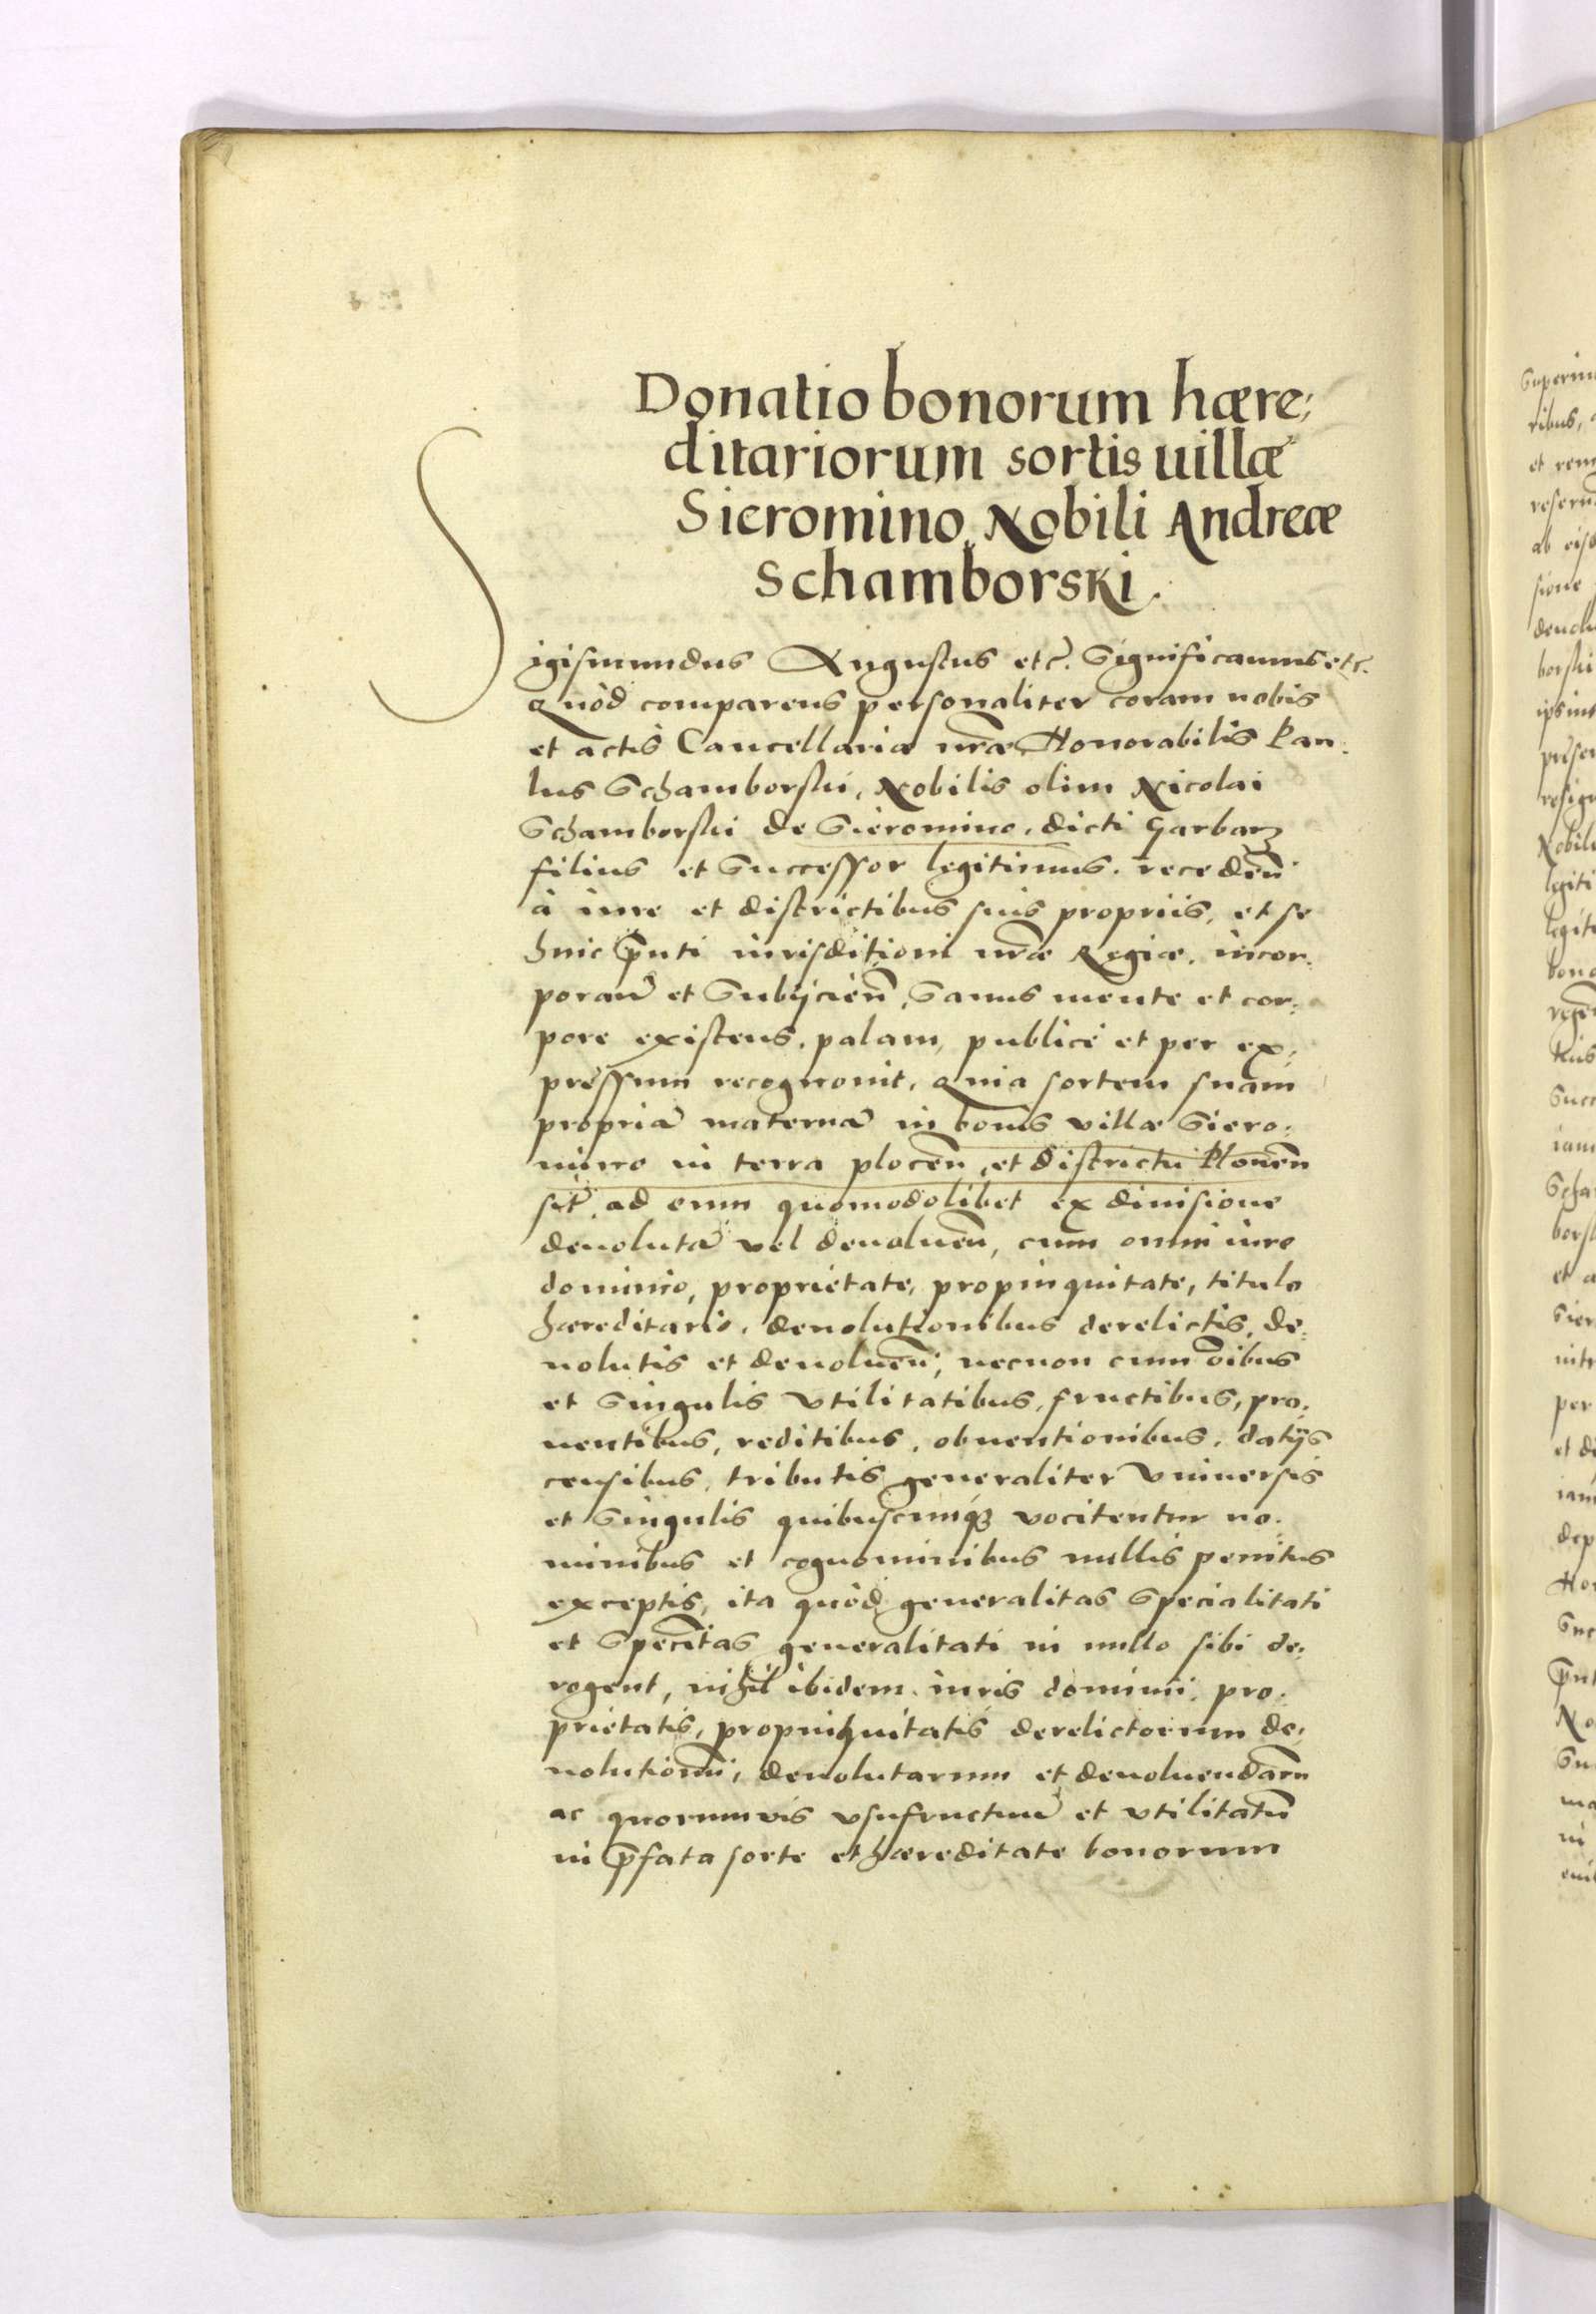 Donatio bonorum hære;
ditariorum sortis uillæ
Sieromino Nobili Andreæ
Schamborski.
Sigismundus Augustus etc̃. Significamus etc.
Quòd comparens personaliter coram nobis
et actis Cancellariæ nr̃æ Honorabilis Pau:
lus Schamborski, Nobilis olim Nicolai
Schamborski de Sieromino, dicti Garbarz
filius et Successor legitimus. recedeñ
à iure et districtibus suis propriis, et se
huic p̃nti iurisditioni nr̃æ Regiæ, incor:
porañ et Subijcieñ, Sanus mente et cor:
pore existens, palam, publicè et per ex:
pressum recognouit, Quia sortem suam
propriã maternã in bonis villæ Siero:
mino in terra ploceñ, et districtu Ploneñ
sit̃. ad eum quomodolibet ex diuisione
deuolutã vel deuolueñ, cum omni iure
dominio, proprietate, propinquitate, titulo
hæreditario, deuolutionibus derelictis, de:
uolutis et deuolueñ, necnon cum oĩbus
et Singulis vtilitatibus, fructibus, pro:
uentibus, reditibus, obuentionibus, datijs
censibus, tributis generaliter vniuersis
et Singulis quibuscunq; vocitentur no:
minibus et cognominibus nullis penitus
exceptis, ita quòd generalitas Specialitati
et Specĩtas generalitati in nullo sibi de:
rogent, nihil ibidem iuris dominii, pro:
prietatis, propinquitatis derelictorum de:
uolutionũ, deuolutarum et deuoluendarũ
ac quorumvis vsufructuũ et vtilitatũ
in p̃fata sorte et hæreditate bonorum